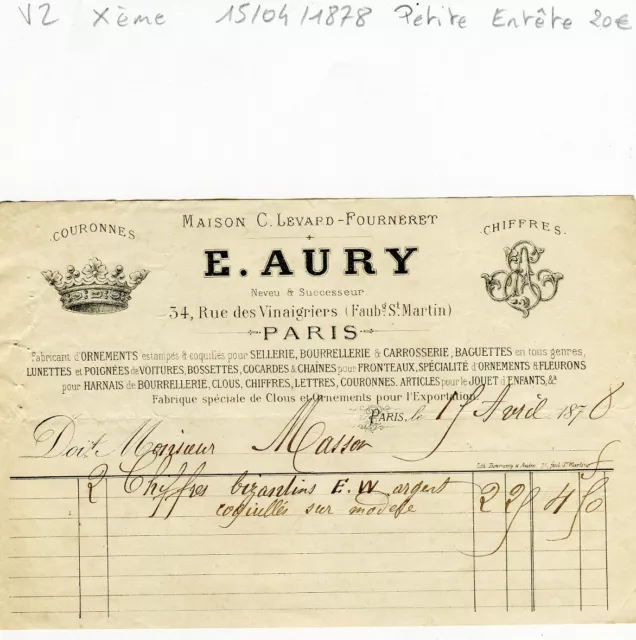 V2 Xème 15/04/1878 Petite Entête 20€
MAISON C. LEVARD-FOURNERET
COURONNES
CHIFFRES
E. AURY
Neveu & Successeur
34, Rue des Vinaigriers (Faubg. St. Martin)
PARIS
Fabricant d'ORNEMENTS estampés & coquillés pour SELLERIE, BOURRELLERIE & CARROSSERIE, BAGUETTES en tous genres,
LUNETTES et POIGNÉES de VOITURES, BOSSETTES, COCARDES & CHAÎNES pour FRONTEAUX, SPÉCIALITÉ d'ORNEMENTS & FLEURONS
pour HARNAIS de BOURRELLERIE, CLOUS, CHIFFRES, LETTRES, COURONNES. ARTICLES pour le JOUET d'ENFANTS, &a
Fabrique spéciale de Clous et Ornements pour l'Exportation.
PARIS, le 15 Avril 1878
Doit Monsieur Masson
2 Chiffres bizantins E. W argent 2 25 4 50
coquillés sur modele